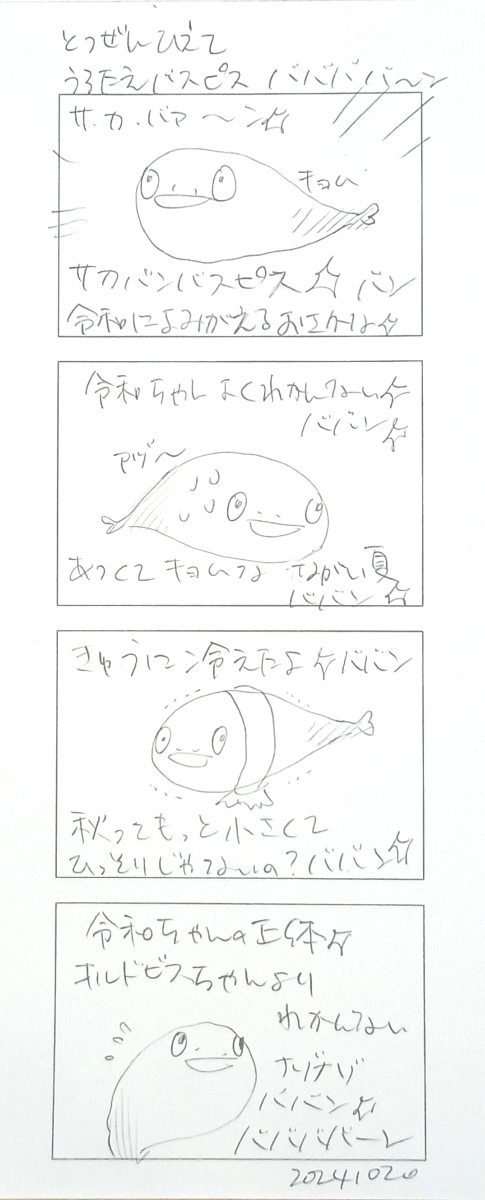 とつぜんひえて
うろたえバスピス バババババ〜ン
サ.カ.バア〜ン☆
キョム
サカバンバスピス☆ バン
令和によみがえるおさかな☆
令和ちゃん よくわかんない☆
ババン☆
アヅ〜
あつくて キョムな ながい夏
ババン☆
きゅうに冷えたよ☆ババン
秋ってもっと小さくて
ひっそりじゃないの?ババン☆
令和ちゃんの正体☆
オルドビスちゃんより
わかんない
ナゾナゾ
ババン☆
バババババーン
20241020